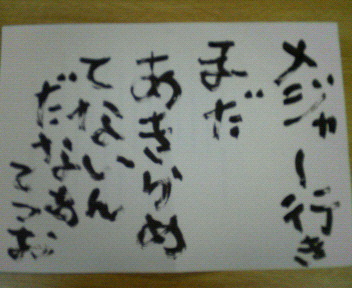 メジャー行き
まだ
あきらめ
てないん
だなあ
てつお